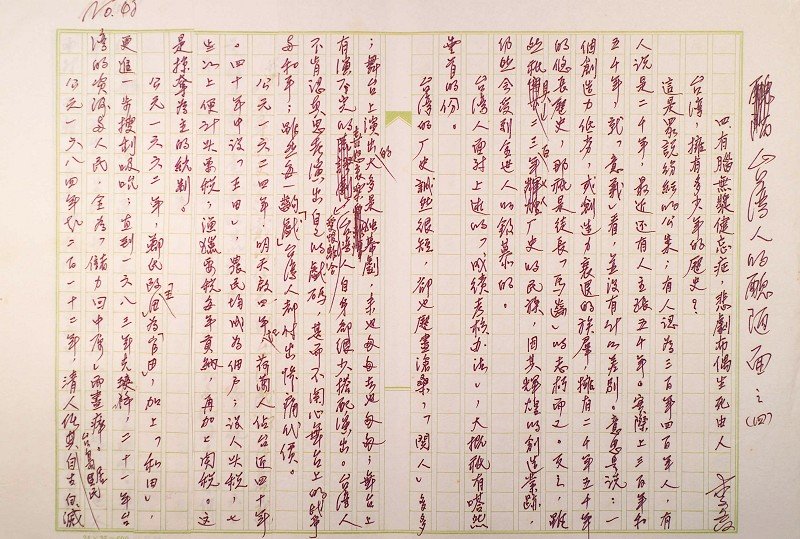 No. 03
醜陋的台灣人的醜陋面之(四)
四、有腦無漿健忘症,悲劇玩偶生死由人 李喬
台灣,擁有多少年的歷史?
這是眾說紛紜的公案;有人認為三百年四百年,有
人說是二千年,最近還有人主張五千年。實際上三百年和
五千年,就「意義」看,並沒有什麼差別。意思是說:一
個創造力低劣,或創造力衰退的族群,擁有二千年五千年
的悠長歷史,那祇是徒長「馬齒」的老朽而已。反之,雖
然祇具二、三百年輝煌歷史的民族,因其輝煌的創造業跡,
仍然會受到全世人的欽慕的。
台灣人面對上述的「成績考核辦法」,大概祇有嗒然
無言的份。
台灣的歷史誠然很短,卻也歷盡滄桑,「閱人」多多
;舞台上演出的大多是獨幕劇,來也匆匆去也匆匆;舞台上
有演不完的喜怒哀樂,台灣人自身卻很少搭配演出。台灣人
不肯認真思索演出自己的戲碼,甚而不關心舞台上的戰爭
與和平;雖然每一齣「戲」台灣人都付出慘痛代價。
公元一六二四年,明天啟四年起,荷蘭人佔台近四十年
。四十年中設「王田」,農民均成為佃戶;設人頭稅,七
歲以上便計頭要稅,漁獵要稅每年貢納,再加上關稅。這
是掠奪為主的統制。
公元一六六二年,鄭氏改「王田」為「官田」,加上「私田」,
更進一步搜刮吸吮;直到一六八三年克塽降,二十一年台
灣的資源與人民,全為「儲力回中原」而盡瘁。
公元一六八四年起二百一十二年,清人任台島居民自生自滅